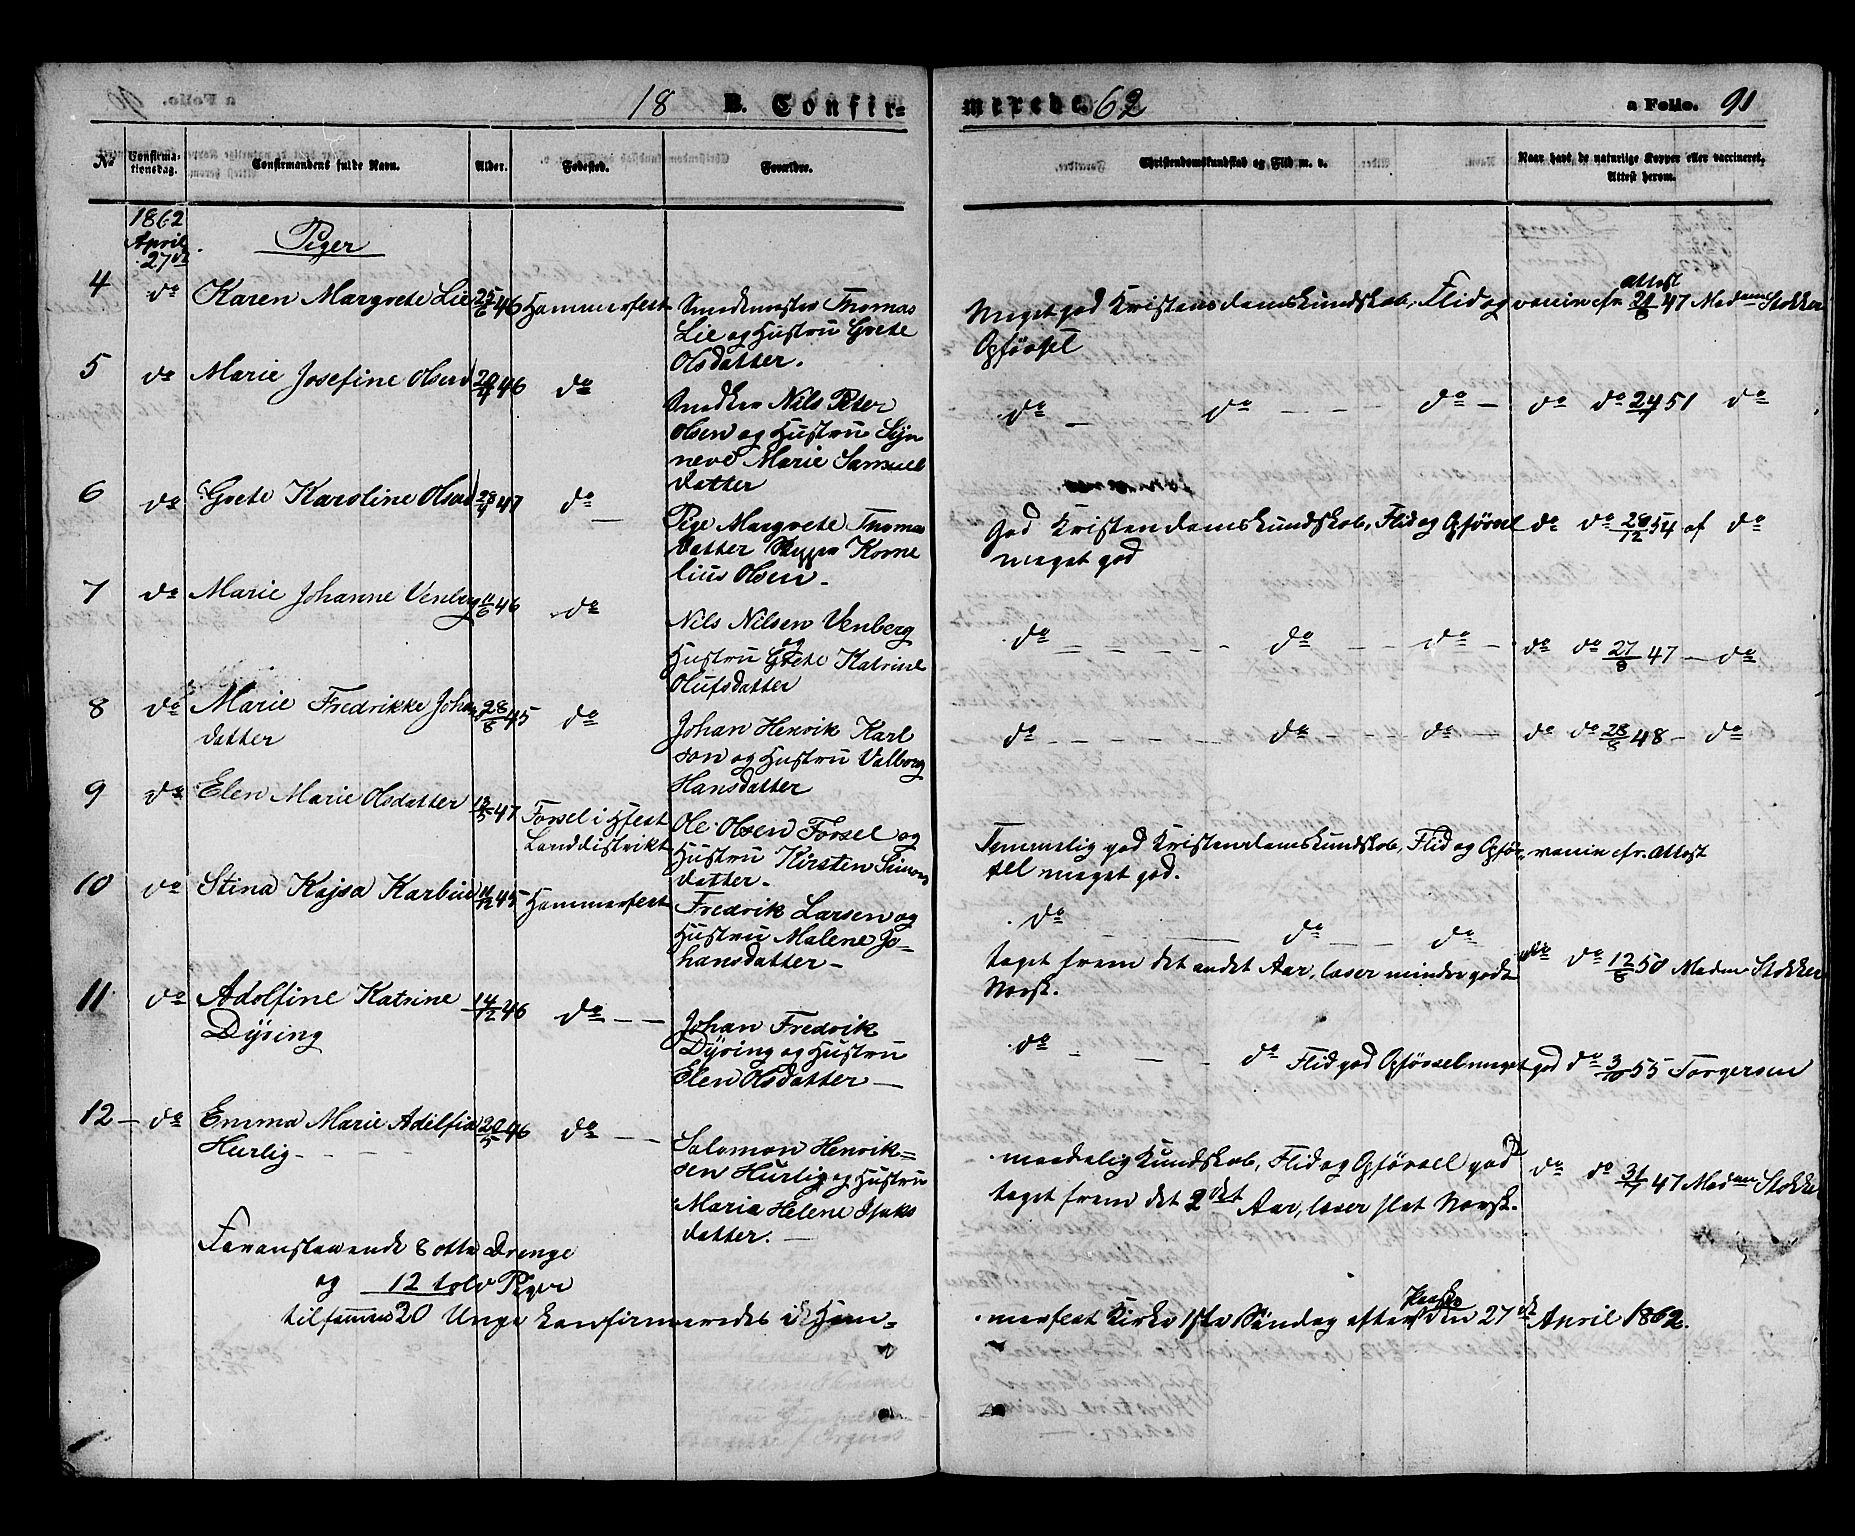 18 B. Confir=
merede. 62 a Folio. 91
No Confirma-tionsdag. Confirmandens fulde Navn. Alder. Fødested. Forældre. Christendomskundskab og Flid m. v. Naar havt de naturlige Kopper eller vaccineret, Attest herom.
1862
April
27de
Piger
4 do Karen Margrete Lie 25/6 46 Hammerfest Smedemester Thomas
Lie og Hustru Grete
Olsdatter.
Meget god Kristendomskundskab, Flid og
Opførsel
vaccin. efr. attest 24/8 47 Madam Stokker
5 do Marie Josefine Olsen 20/4 46 do Snedker Nils Peter
Olsen og Hustru Syn
neve Marie Samuel
datter
do do do do do 24/7 51 do
6 do Grete Karoline Olsen 28/4 47 do Pige Margrete Thomas
datter Kornelius Olsen
God Kristendomskundskab, Flid og Opførsel
meget god
do do 28/12 54 af do
7 do Marie Johanne Venberg 11/6 46 do Nils Nilsen Venberg
og
Hustru Grete Katrine
Olufsdatter
do do do do do 27/8 47 do
8 do Marie Fredrikke Johan
datter 28/8 45 do Johan Henrik Karl
son og Hustru Valborg
Hansdatter
do do do do do 28/8 48 do
9 do Elen Marie Olsdatter 13/5 47 Forsel i Hfest
Landdistrikt
Ole Olsen Forsel og
Hustru Kirsten Simons
datter.
Temmelig god Kristendomskundskab, Flid og Opfør
sel meget god.
vaccin. efr. attest
10 do Stina Kajsa 11/12 45 Hammerfest Fredrik Larsen og
Hustru Malene Jo-
hansdatter
do do do
taget frem det andet Aar, læser mindre godt
Norsk.
do do 12/8 50 Madam Stokker
11 do Adolfine Katrine
Dyring 14/12 46 do Johan Fredrik
Dyring og Hustru
Elen Olsdatter
do do Flid god Opførsel meget god do 3/10 55 Torgersen
12 do Emma Marie Adelfia
Hurlig 20/5 46 do Salomon Henrik=
sen Hurlig og Hustru
Maria Helene Isaks
datter.
maadelig Kundskab, Flid og Opførsel god
taget frem det 2det Aar, læser slet Norsk.
do do 31/7 47 Madam Stokker
Foranstaaende 8 otte Drenge
og 12 tolv Piger
tilsammen 20 Unge konfirmeredes i Ham-
merfest Kirke 1ste Søndag efter Paaske den 27de April 1862.